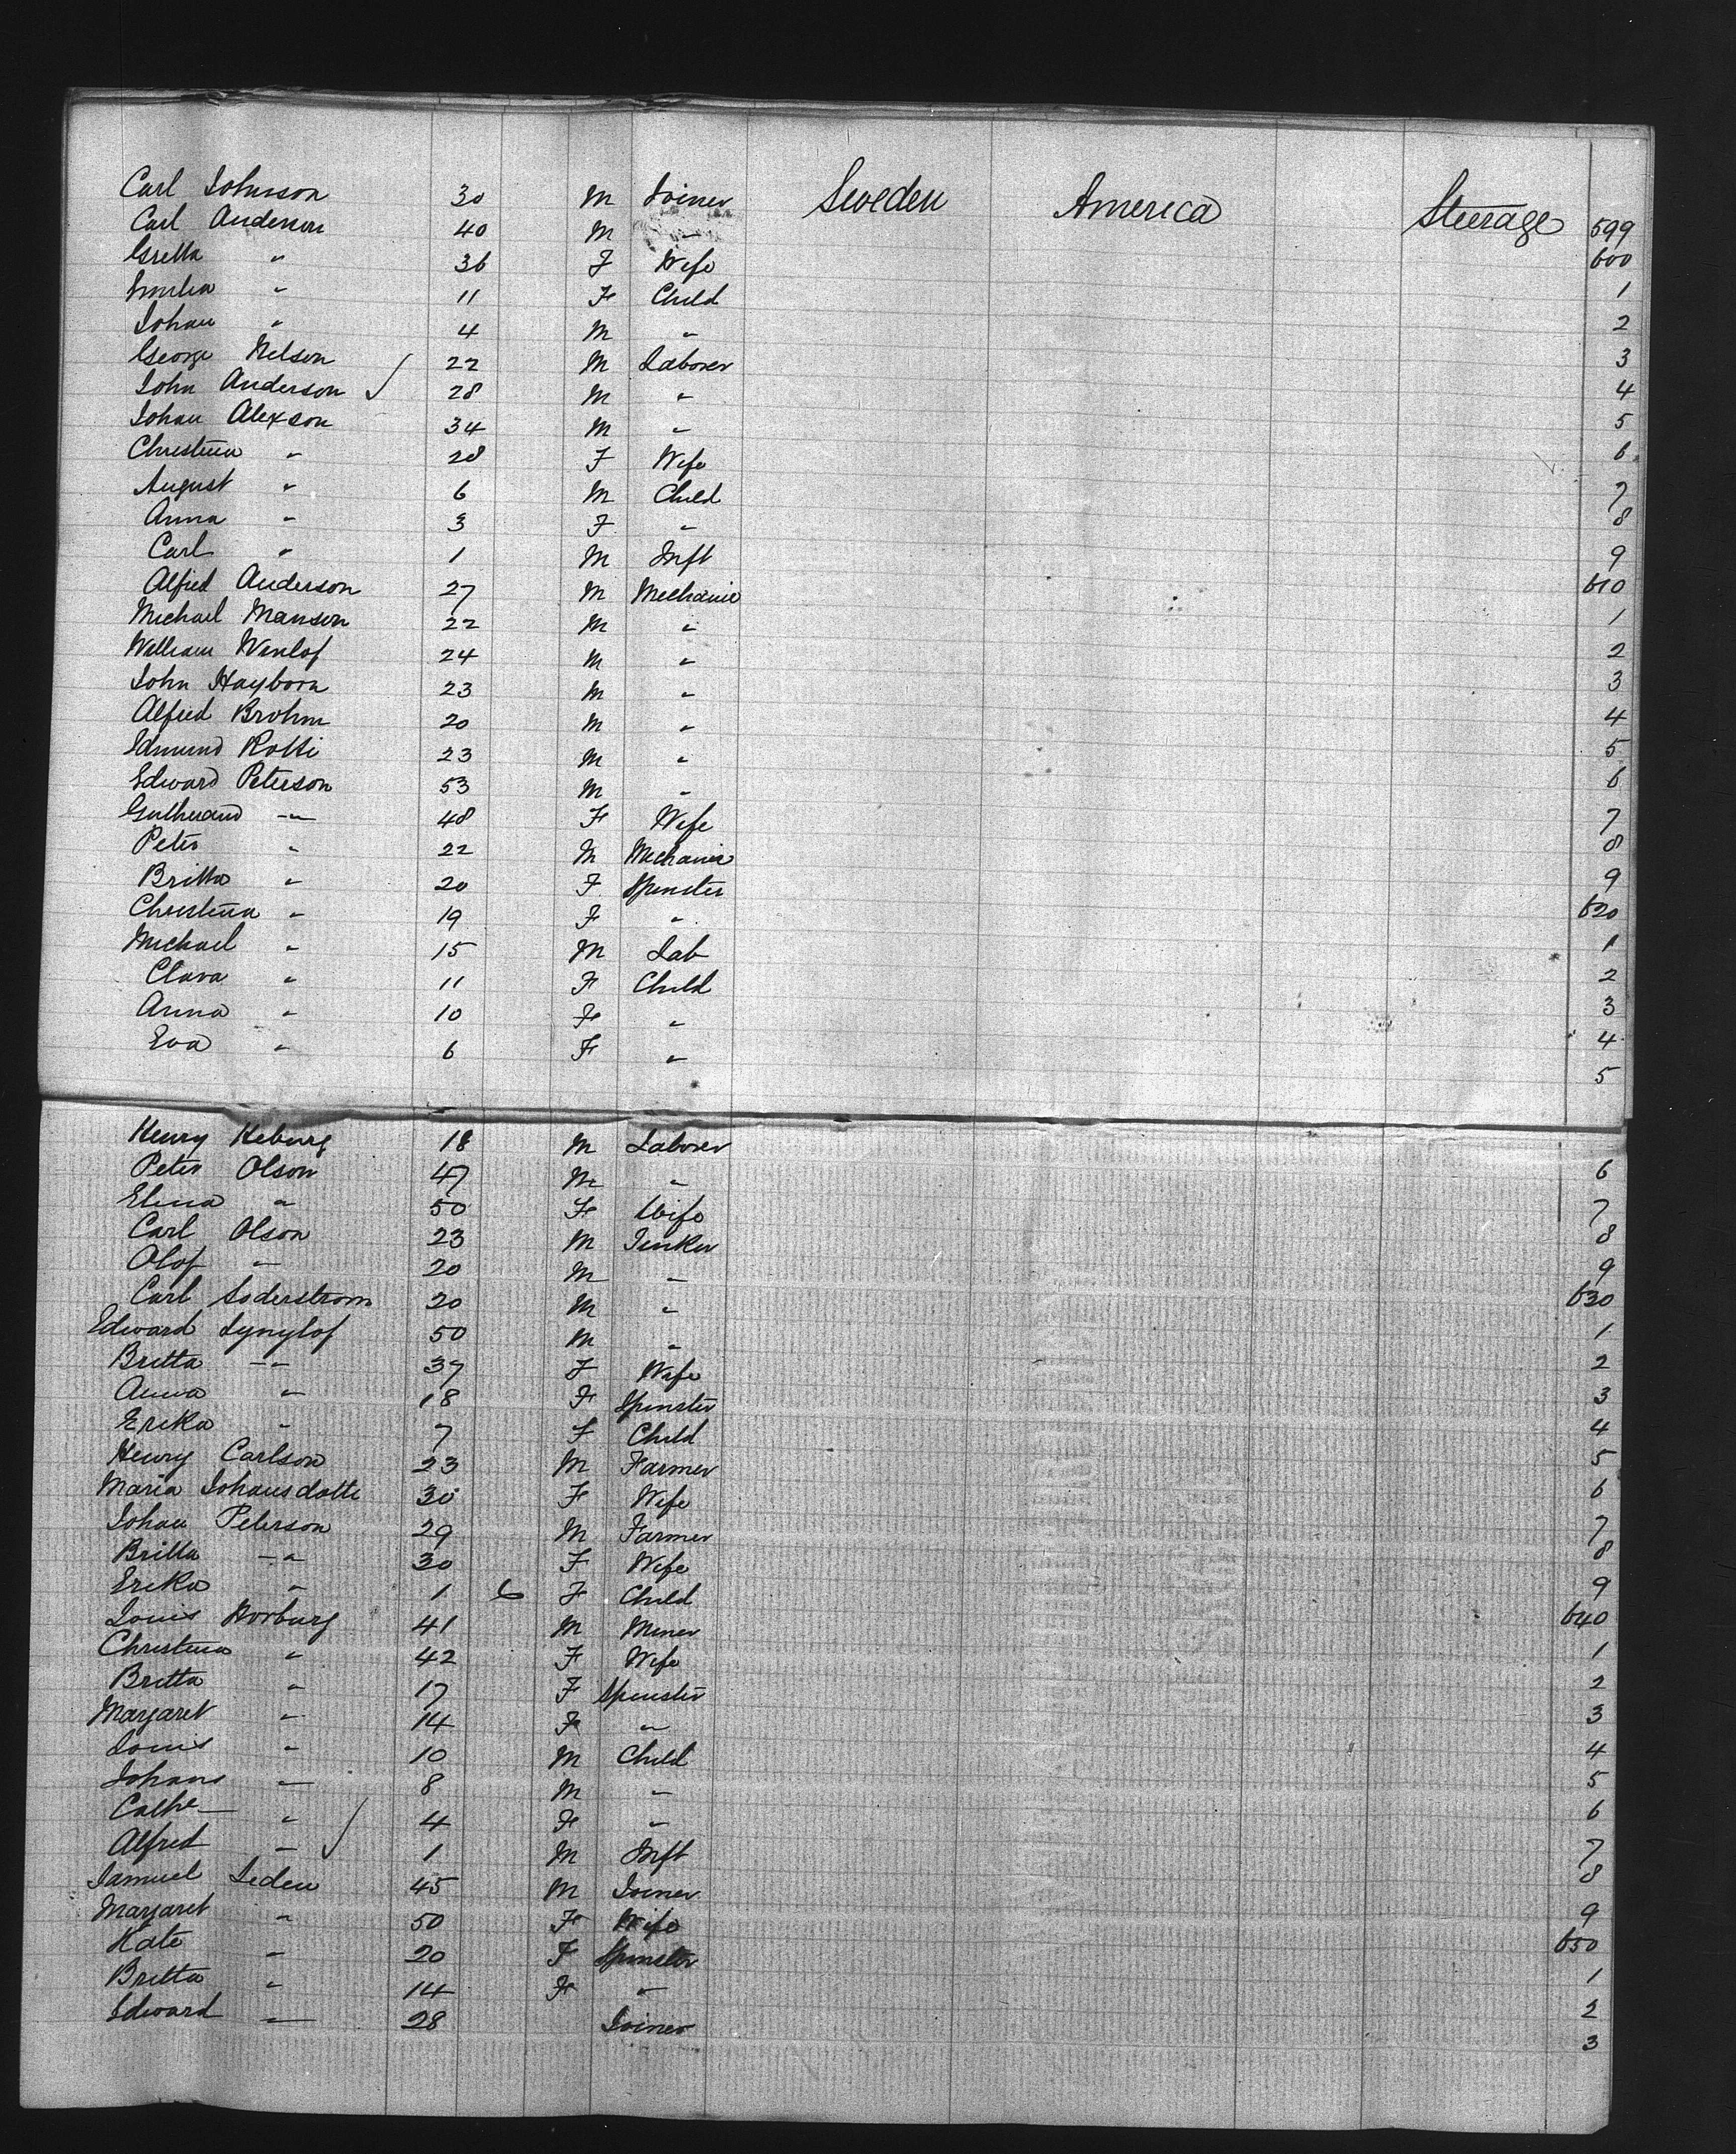 Carl Johnson 30 M Joiner Sweden America Steerage 599
Carl Anderson 40 M " 600
Gretta " 36 F Wife 1
Emilia " 11 F Child 2
Johan " 4 M " 3
George Nelson 22 M Laborer 4
John Anderson ✓ 28 M " 5
Johan Alexson 34 M " 6
Christina " 28 F Wife 7
August " 6 M Child 8
Anna " 3 F " 9
Carl " 1 M Inft 610
Alfred Anderson 27 M Mechanic 1
Michael Manson 22 M " 2
William Winlof 24 M " 3
John Hayborn 23 M " 4
Alfred Brohm 20 M " 5
Edmund Rotti 23 M " 6
Edward Peterson 53 M " 7
" 48 F Wife 8
Peter " 22 M Mechanic 9
Britta " 20 F Spinster 620
Christina " 19 F " 1
Michael " 15 M Lab 2
Clara " 11 F Child 3
Anna " 10 F " 4
Eva " 6 F " 5
Henry Heburg 18 M Laborer 6
Peter Olson 47 M " 7
Elina " 50 F Wife 8
Carl Olson 23 M Tinker 9
Olof " 20 M " 630
Carl Soderstrom 20 M " 1
Edward Lynglof 50 M " 2
Britta " 37 F Wife 3
Anna " 18 F Spinster 4
Erika " 7 F Child 5
Henry Carlson 23 M Farmer 6
Maria Johansdotte 30 F Wife 7
Johan Peterson 29 M Farmer 8
Britta " 30 F Wife 9
Erika " 1 6 F Child 640
Louis Norburg 41 M Miner 1
Christina " 42 F Wife 2
Britta " 17 F Spinster 3
Margaret " 14 F " 4
Louis " 10 M Child 5
Johans " 8 M " 6
Cathe " 4 F " 7
Alfred " ✓ 1 M Inft 8
Samuel Leden 45 M Joiner 9
Margaret " 50 F Wife 650
Kate " 20 F Spinster 1
Britta " 14 F " 2
Edward " 28 Joiner 3